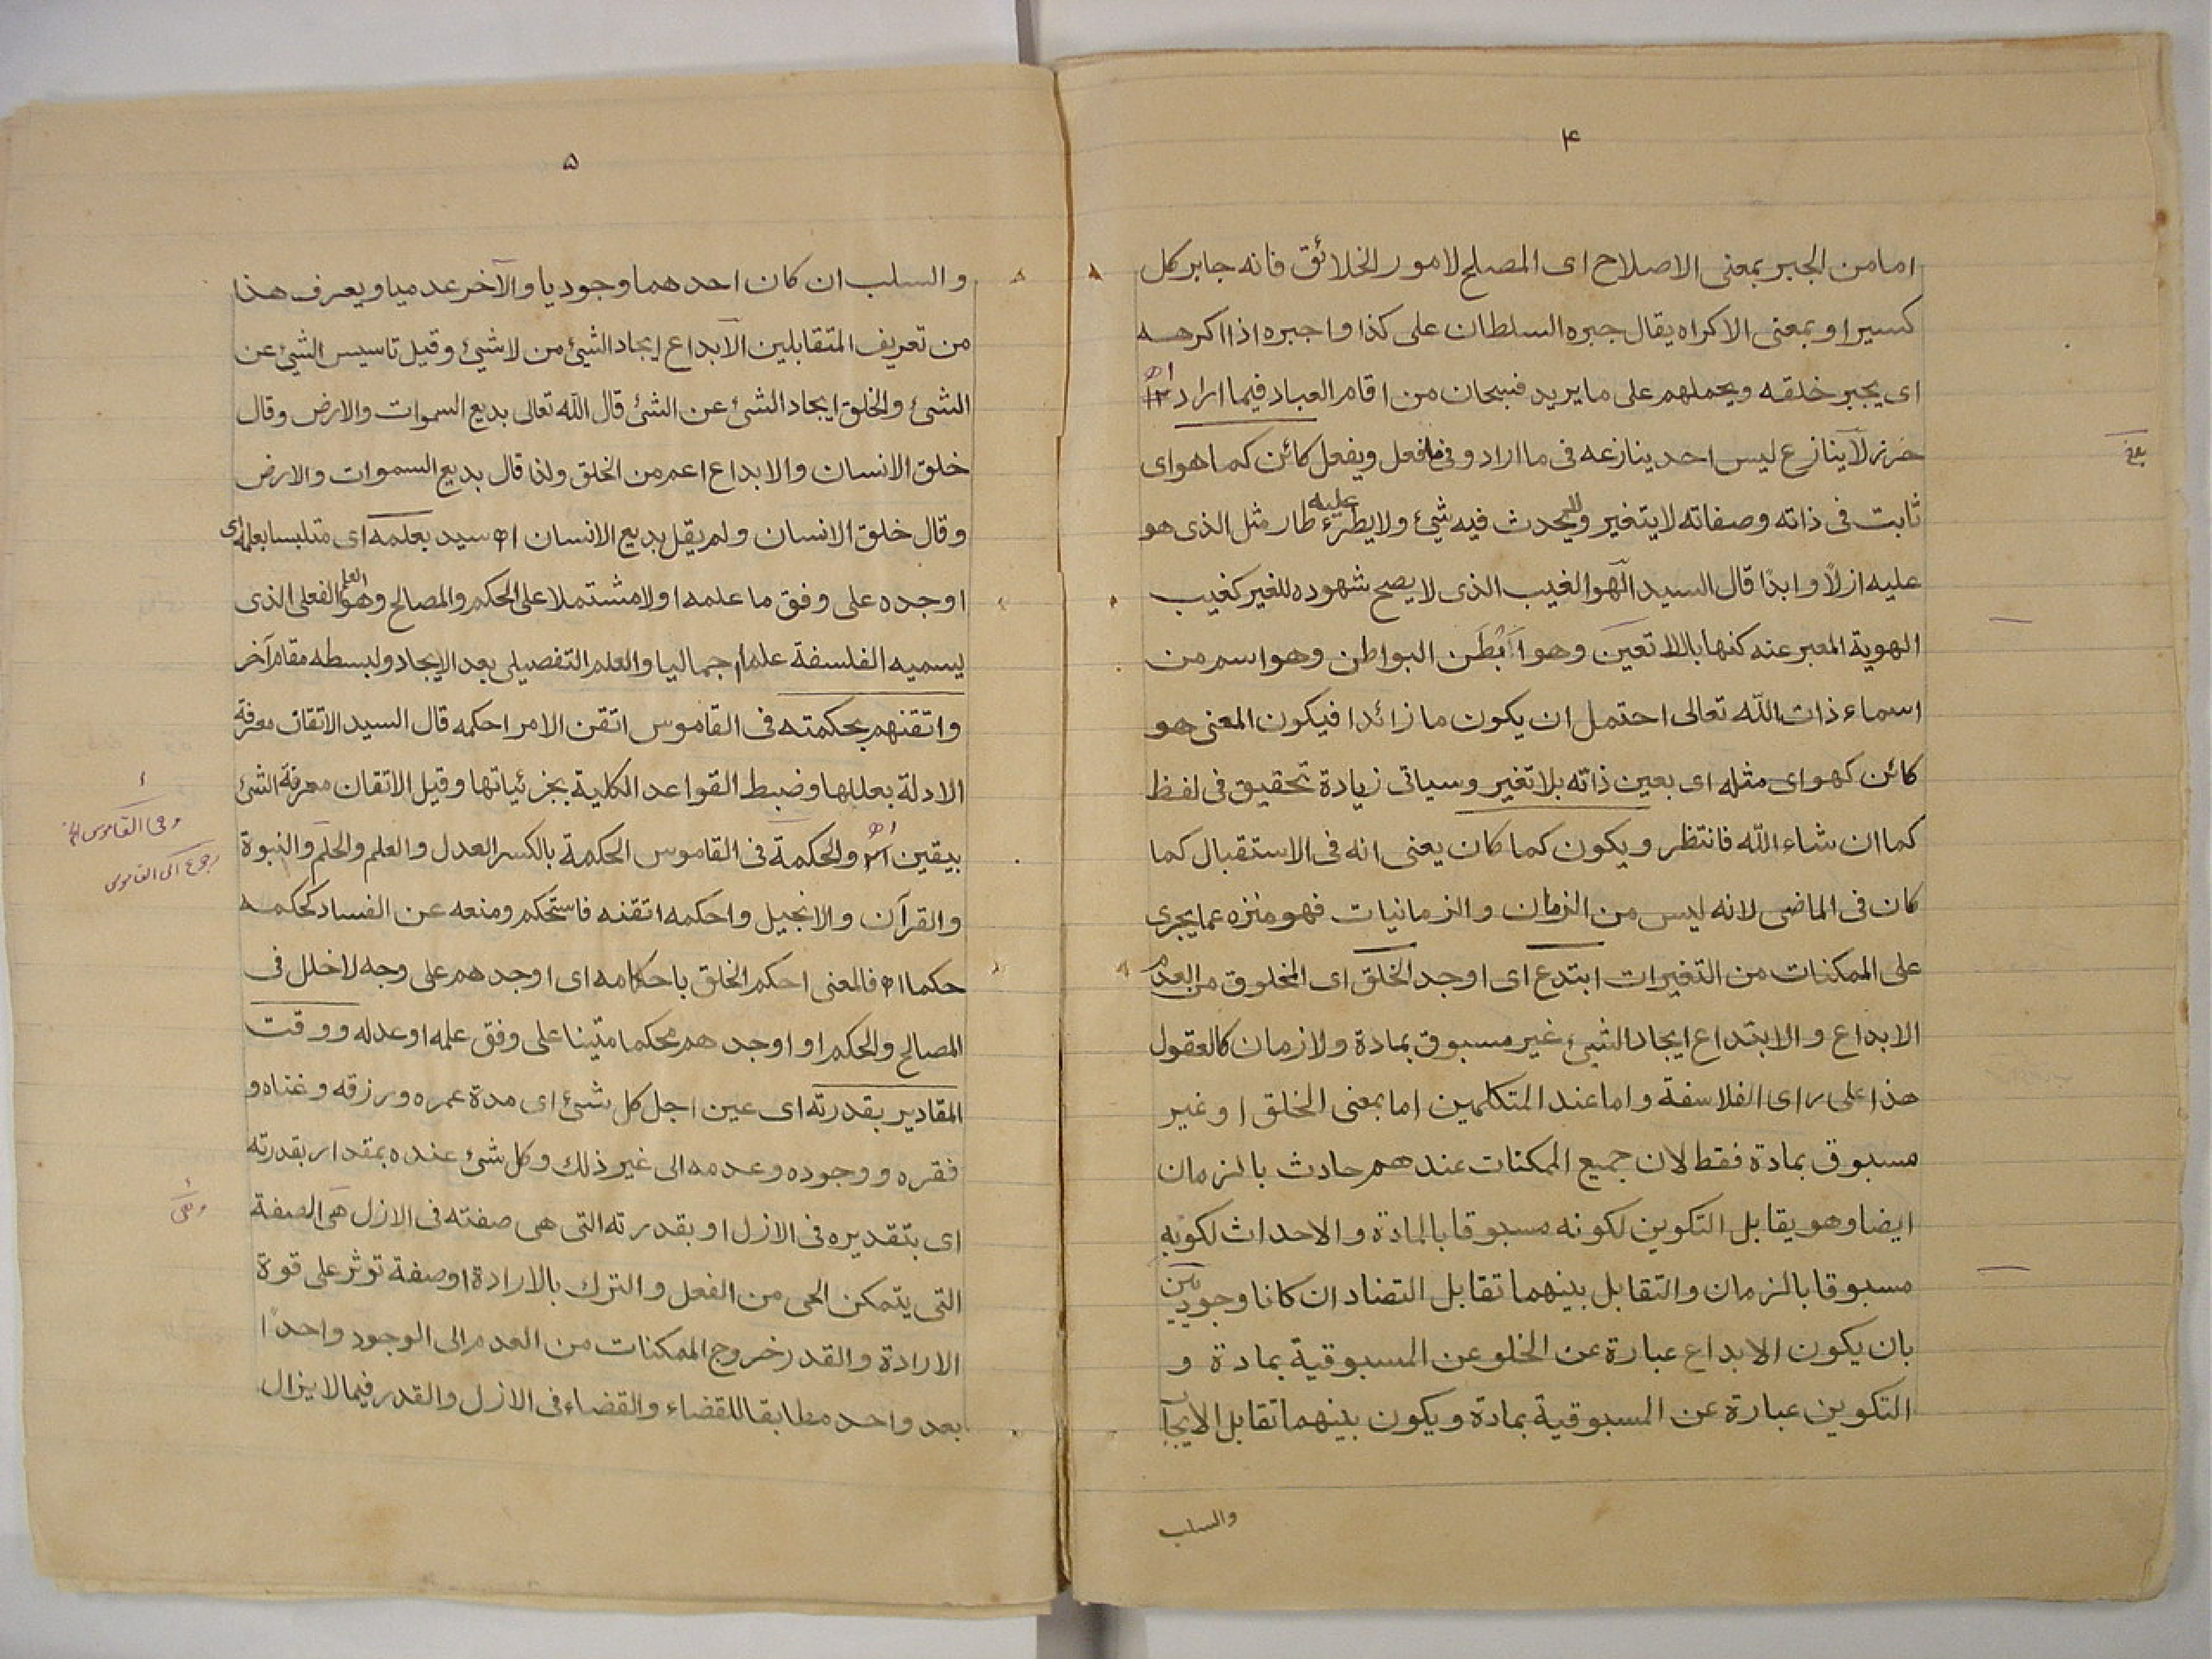 ۴
اما من الجبر بمعنى الاصلاح اى المصلح لامور الخلائق فانه جابر كل
كسير او بمعنى الاكراه يقال جبره السلطان على كذا واجبره اذا اكرهه
اى يجبر خلقه ويحملهم على ما يريد فسبحان من اقام العباد فيما اراد اه
حرز لا ينازع ليس احد ينازعه فى ما اراد وفى ما فعل ويفعل كائن كما هو اى
ثابت فى ذاته وصفاته لا يتغير ولا يحدث فيه شئ ولا يطرء عليه طار مثل الذى هو
عليه ازلًا وابدًا قال السيد الهو الغيب الذى لا يصح شهوده للغير كغيب
الهوية المعبر عنه كنها باللا تعين وهو ابطن البواطن وهو اسم من
اسماء ذات الله تعالى احتمل ان يكون ما زائدا فيكون المعنى هو
كائن كهو اى مثله اى بعين ذاته بلا تغير وسياتى زيادة تحقيق فى لفظ
كما ان شاء الله فانتظر ويكون كما كان يعنى انه فى الاستقبال كما
كان فى الماضى لانه ليس من الزمان والزمانيات فهو منزه عما يجرى
على الممكنات من التغيرات ابتدع اى اوجد الخلق اى المخلوق من العدم
الابداع والابتداع ايجاد الشئ غير مسبوق بمادة ولا زمان كالعقول
هذا على راى الفلاسفة واما عند المتكلمين اما بمعنى الخلق او غير
مسبوق بمادة فقط لان جميع الممكنات عندهم حادث بالزمان
ايضا وهو يقابل التكوين لكونه مسبوقا بالمادة والاحداث لكونه
مسبوقا بالزمان والتقابل بينهما تقابل التضاد ان كانا وجوديين
بان يكون الابداع عبارة عن الخلو عن المسبوقية بمادة و
التكوين عبارة عن المسبوقية بمادة ويكون بينهما تقابل الايجا
والسلب
۵
والسلب ان كان احدهما وجوديا والآخر عدميا ويعرف هذا
من تعريف المتقابلين الابداع ايجاد الشئ من لا شئ وقيل تاسيس الشئ عن
الشئ والخلق ايجاد الشئ عن الشئ قال الله تعالى بديع السموات والارض وقال
خلق الانسان والابداع اعم من الخلق ولذا قال بديع السموات والارض
وقال خلق الانسان ولم يقل بديع الانسان اه سيد بعلمه اى متلبسا بعلمه اى
اوجده على وفق ما علمه اولا مشتملا على الحكم والمصالح وهو العلم الفعلى الذى
يسميه الفلسفة علما اجماليا والعلم التفصيلى بعد الايجاد ولبسطه مقام آخر
واتقنهم بحكمته فى القاموس اتقن الامر احكمه قال السيد الاتقان معرفة
الادلة بعللها وضبط القواعد الكلية بجزئياتها وقيل الاتقان معرفة الشئ
بيقين اه والحكمة فى القاموس الحكمة بالكسر العدل والعلم والحلم والنبوة
والقرآن والانجيل واحكمه اتقنه فاستحكم ومنعه عن الفساد كحكمه
حكما اه فالمعنى احكم الخلق باحكامه اى اوجدهم على وجه لا خلل فى
المصالح والحكم او اوجدهم محكما متينا على وفق علمه او عدله ووقت
المقادير بقدرته اى عين اجل كل شئ اى مدة عمره ورزقه وغناه و
فقره ووجوده وعدمه الى غير ذلك وكل شئ عنده بمقدار بقدرته
اى بتقديره فى الازل او بقدرته التى هى صفته فى الازل هى الصفة
التى يتمكن الحى من الفعل والترك بالارادة او صفة توثر على قوة
الارادة والقدر خروج الممكنات من العدم الى الوجود واحدًا
بعد واحد مطابقا للقضاء والقضاء فى الازل والقدر فيما لا يزال
وفى القاموس
رجوع الى القاموس
وهى